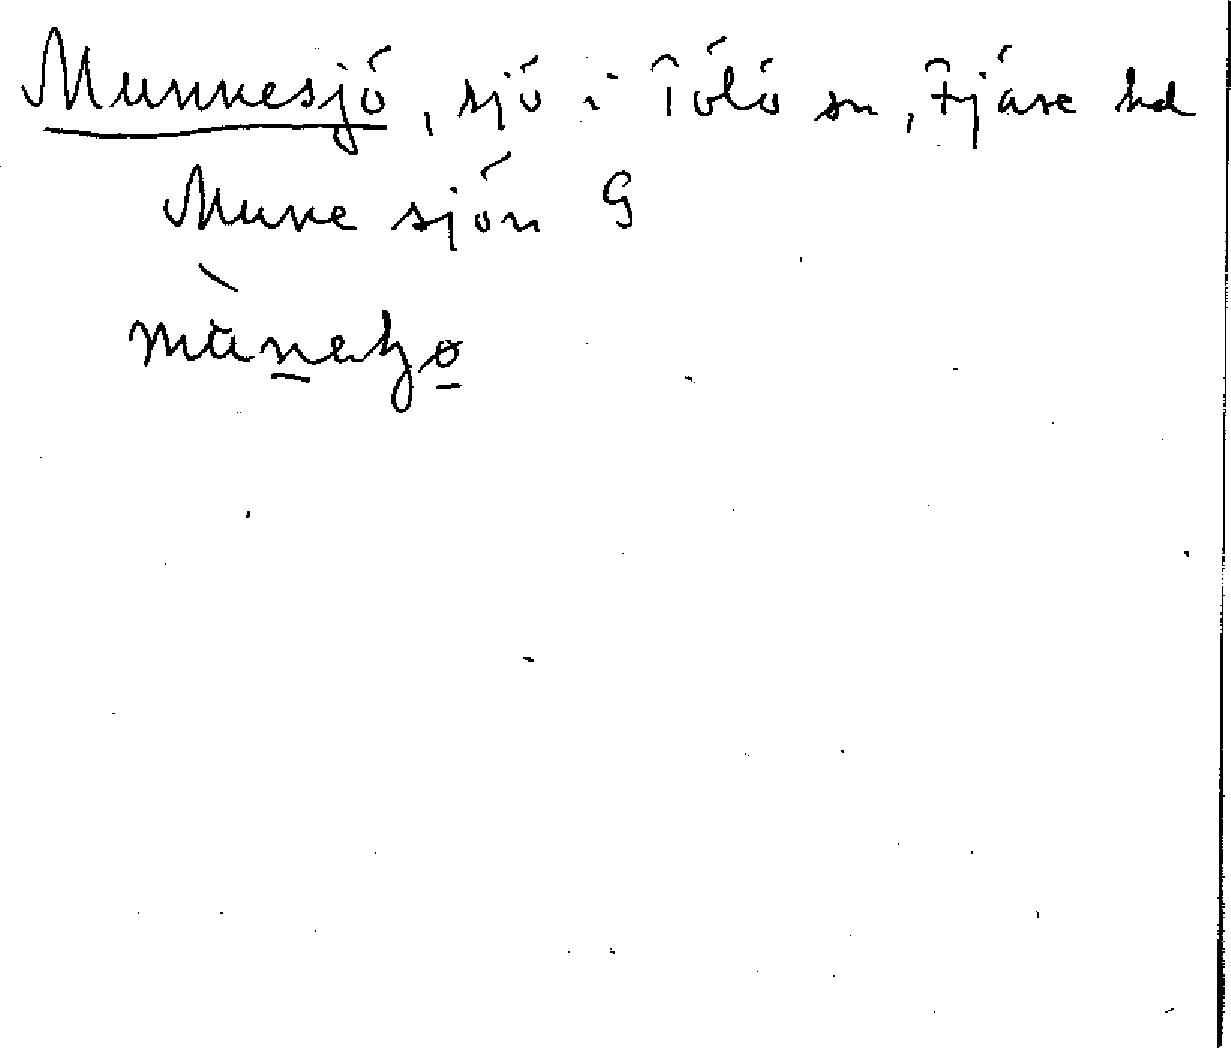 Munnesjö, sjö i Tölö sn, Fjäre hd
Mune sjön G